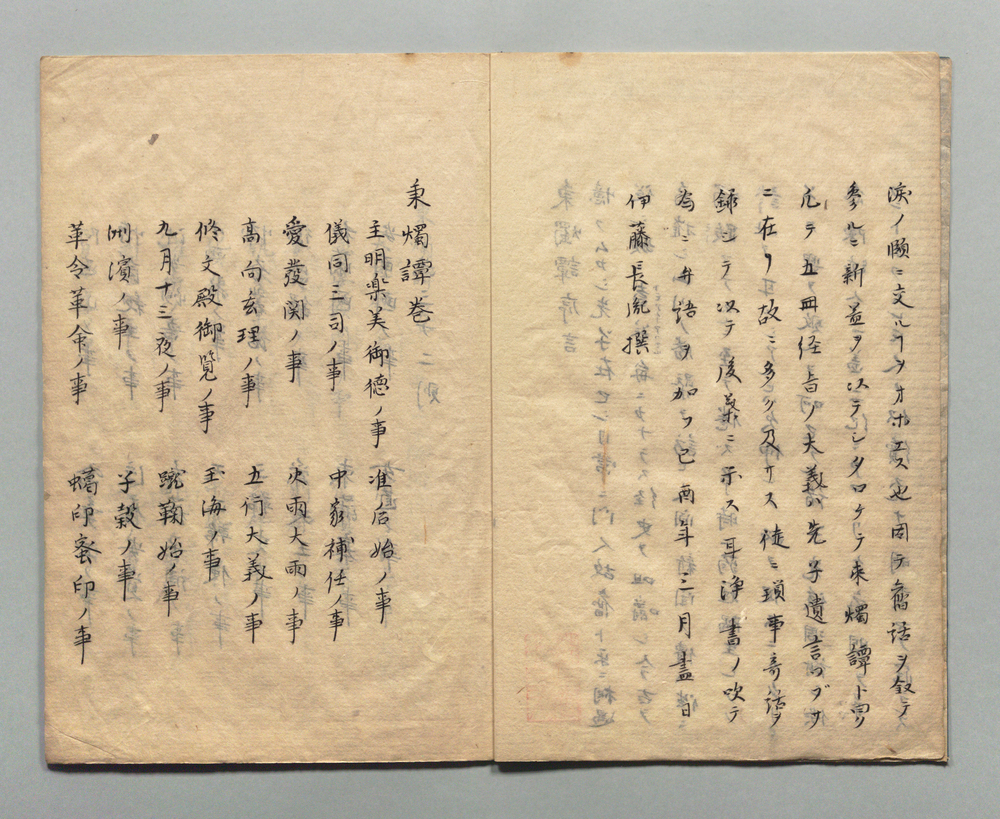 淚ノ頤ニ交ハリヲオホエス也因テ舊話ヲ敘テ
參ルニ新益ヲ以テシタロケテ秉燭譚ト曰フ
凡テ五冊経旨ノ大義ハ先子遺言ツブサ
ニ在リ故ニ多ク及ハス徒ニ瑣事奇話ヲ
録シテ以テ後葉ニ示ス耳浄書ノ吹テ
為ニ弁語ヲ加フ己酉年三月盡日
伊藤長胤撰
秉燭譚巻
主明楽美御徳ノ事 准后始ノ事
儀同三司ノ事 中家補任ノ事
愛發関ノ事 火雨大雨ノ事
高向玄理ノ事 五行大義ノ事
修文殿御覧ノ事 玉海ノ事
九月十三夜ノ事 蹴鞠始ノ事
洲濱ノ事 子穀ノ事
革令革命ノ事 蠟印蜜印ノ事